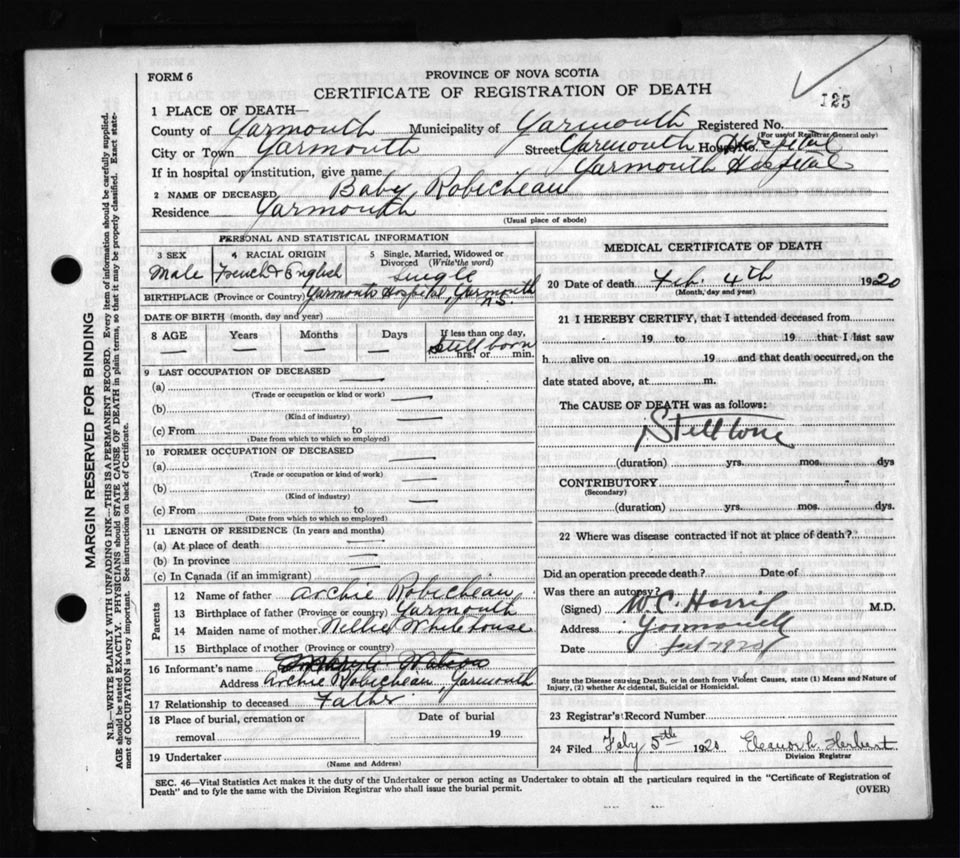 FORM 6
PROVINCE OF NOVA SCOTIA
CERTIFICATE OF REGISTRATION OF DEATH
125
1 PLACE OF DEATH—
County of Yarmouth Municipality of Yarmouth Registered No.
(For use of Registrar General only)
City or Town Yarmouth Street Yarmouth Hospital House No.
If in hospital or institution, give name Yarmouth Hospital
2 NAME OF DECEASED Baby Robicheau
Residence Yarmouth
(Usual place of abode)
PERSONAL AND STATISTICAL INFORMATION
3 SEX 4 RACIAL ORIGIN 5 Single, Married, Widowed or Divorced (Write the word)
Male French & English Single
BIRTHPLACE (Province or Country) Yarmouth Hospital, Yarmouth N.S.
DATE OF BIRTH (month, day and year)
8 AGE Years Months Days If less than one day,
— — — — Stillborn
hrs. or min.
9 LAST OCCUPATION OF DECEASED —
(a) —
(Trade or occupation or kind or work)
(b) —
(Kind of industry)
(c) From to
(Date from which to which so employed)
10 FORMER OCCUPATION OF DECEASED
(a) —
(Trade or occupation or kind of work)
(b) —
(Kind of industry)
(c) From to
(Date from which to which so employed)
11 LENGTH OF RESIDENCE (In years and months)
(a) At place of death —
(b) In province —
(c) In Canada (if an immigrant) —
Parents
12 Name of father Archie Robicheau
13 Birthplace of father (Province or country) Yarmouth
14 Maiden name of mother Nellie Whitehouse
15 Birthplace of mother (Province or country)
16 Informant's name Watson
Address Archie Robicheau, Yarmouth
17 Relationship to deceased Father
18 Place of burial, cremation or removal Date of burial 19
19 Undertaker
(Name and Address)
MEDICAL CERTIFICATE OF DEATH
20 Date of death Feb. 4th 1920
(Month, day and year)
21 I HEREBY CERTIFY, that I attended deceased from
19 to 19 that I last saw
h alive on 19 and that death occurred, on the
date stated above, at m.
The CAUSE OF DEATH was as follows:
Stillborn
(duration) yrs. mos. dys
CONTRIBUTORY
(Secondary)
(duration) yrs. mos. dys.
22 Where was disease contracted if not at place of death?
Did an operation precede death? Date of
Was there an autopsy?
(Signed) W. C. Harris M.D.
Address Yarmouth
Date
State the Disease causing Death, or in death from Violent Causes, state (1) Means and Nature of
Injury, (2) whether Accidental, Suicidal or Homicidal.
23 Registrar's Record Number
24 Filed Feby 5th 1920 Eleanor L. Herbert
Division Registrar
SEC. 46—Vital Statistics Act makes it the duty of the Undertaker or person acting as Undertaker to obtain all the particulars required in the "Certificate of Registration of
Death" and to fyle the same with the Division Registrar who shall issue the burial permit.
(OVER)
MARGIN RESERVED FOR BINDING
N.B.—WRITE PLAINLY WITH UNFADING INK—THIS IS A PERMANENT RECORD. Every item of information should be carefully supplied.
AGE should be stated EXACTLY. PHYSICIANS should STATE CAUSE OF DEATH in plain terms, so that it may be properly classified. Exact state-
ment of OCCUPATION is very important. See instructions on back of Certificate.